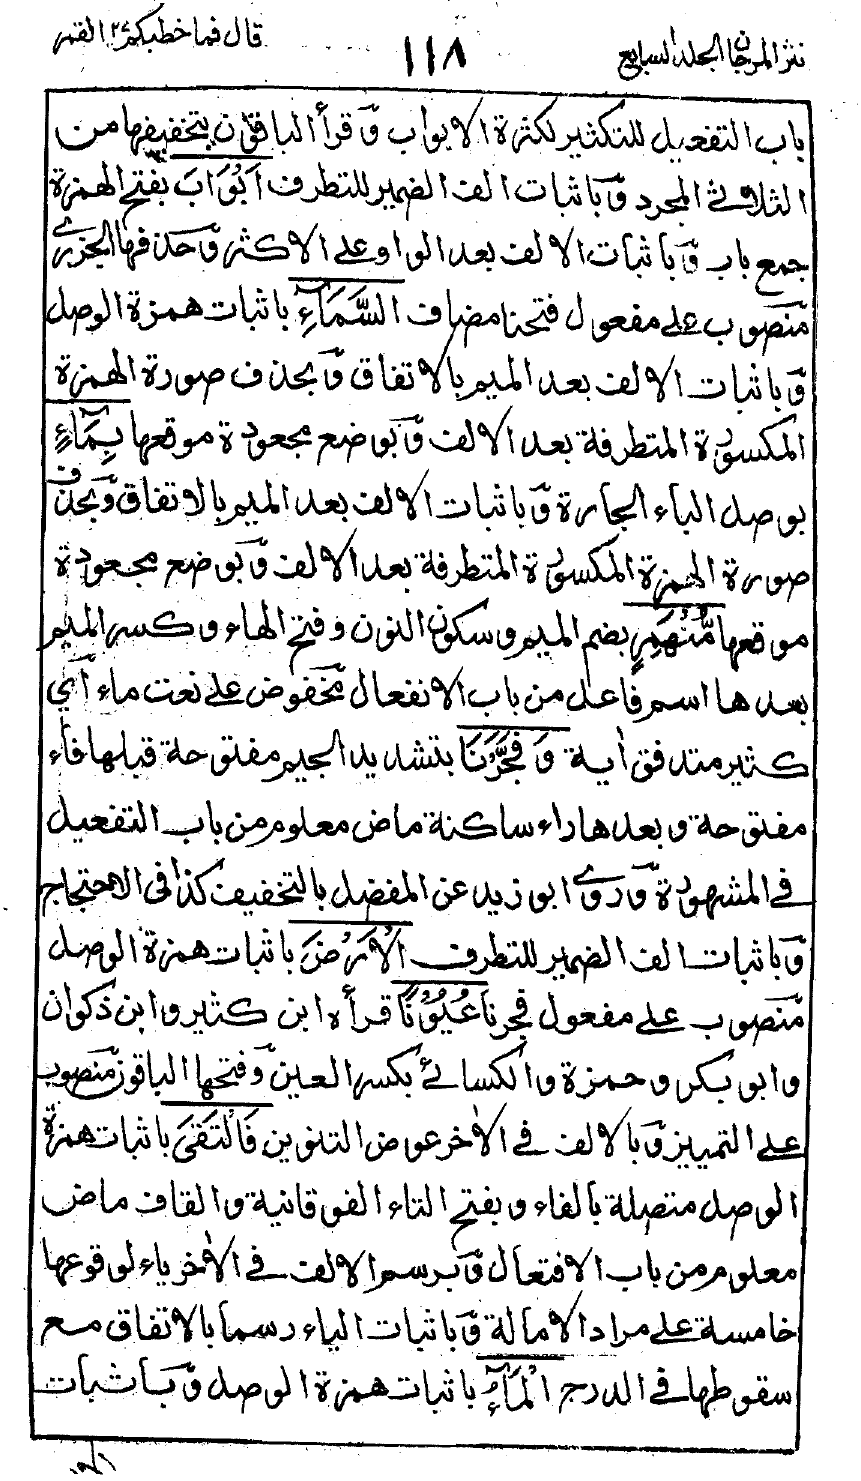 نثر المرجان الجلد السابع
١١٨
قال فما خطبكم ٢٧ القمر
باب التفعيل للتكثير لكثرة الابواب وَقرأ الباقون بتخفيفها من
الثلاثي المجرد وَباثبات الف الضمير للتطرف اَبْوَابَ بفتح الهمزة
جمع باب وَباثبات الالف بعد الواو على الاكثر وَحذفها الجزري
منصوب على مفعول فتحنا مضاف السَّمَآءِ باثبات همزة الوصل
وَباثبات الالف بعد الميم بالاتفاق وَبحذف صورة الهمزة
المكسورة المتطرفة بعد الالف وَبوضع مجعودة موقعها بِمَآءٍ
بوصل الباء الجارة وَباثبات الالف بعد الميم بالاتفاق وَبحذف
صورة الهمزة المكسورة المتطرفة بعد الالف وَبوضع مجعودة
موقعها مُّنْهَمِرٍ بضم الميم وسكون النون وفتح الهاء وكسر الميم
بعدها اسم فاعل من باب الانفعال مخفوض على نعت ماء اَي
كثير متدفق اٰية وَفَجَّرْنَا بتشديد الجيم مفتوحة قبلها فاء
مفتوحة وبعدها راء ساكنة ماض معلوم من باب التفعيل
في المشهورة وَروى ابو زيد عن المفضل بالتخفيف كذا في الاحتجاج
وَباثبات الف الضمير للتطرف الْاَرْضَ باثبات همزة الوصل
منصوب على مفعول فجرنا عُيُوْنًا قرأه ابن كثير وابن ذكوان
وابو بكر وحمزة والكسائي بكسر العين وَفتحها الباقون منصوب
على التمييز وَبالالف في الاٰخر عوض التنوين فَالْتَقَى باثبات همزة
الوصل متصلة بالفاء وبفتح التاء الفوقانية والقاف ماض
معلوم من باب الافتعال وَبرسم الالف في الاٰخر ياء لوقوعها
خامسة على مراد الامالة وَباثبات الياء رسما بالاتفاق مع
سقوطها في الدرج الْمَآءُ باثبات همزة الوصل وَباثبات